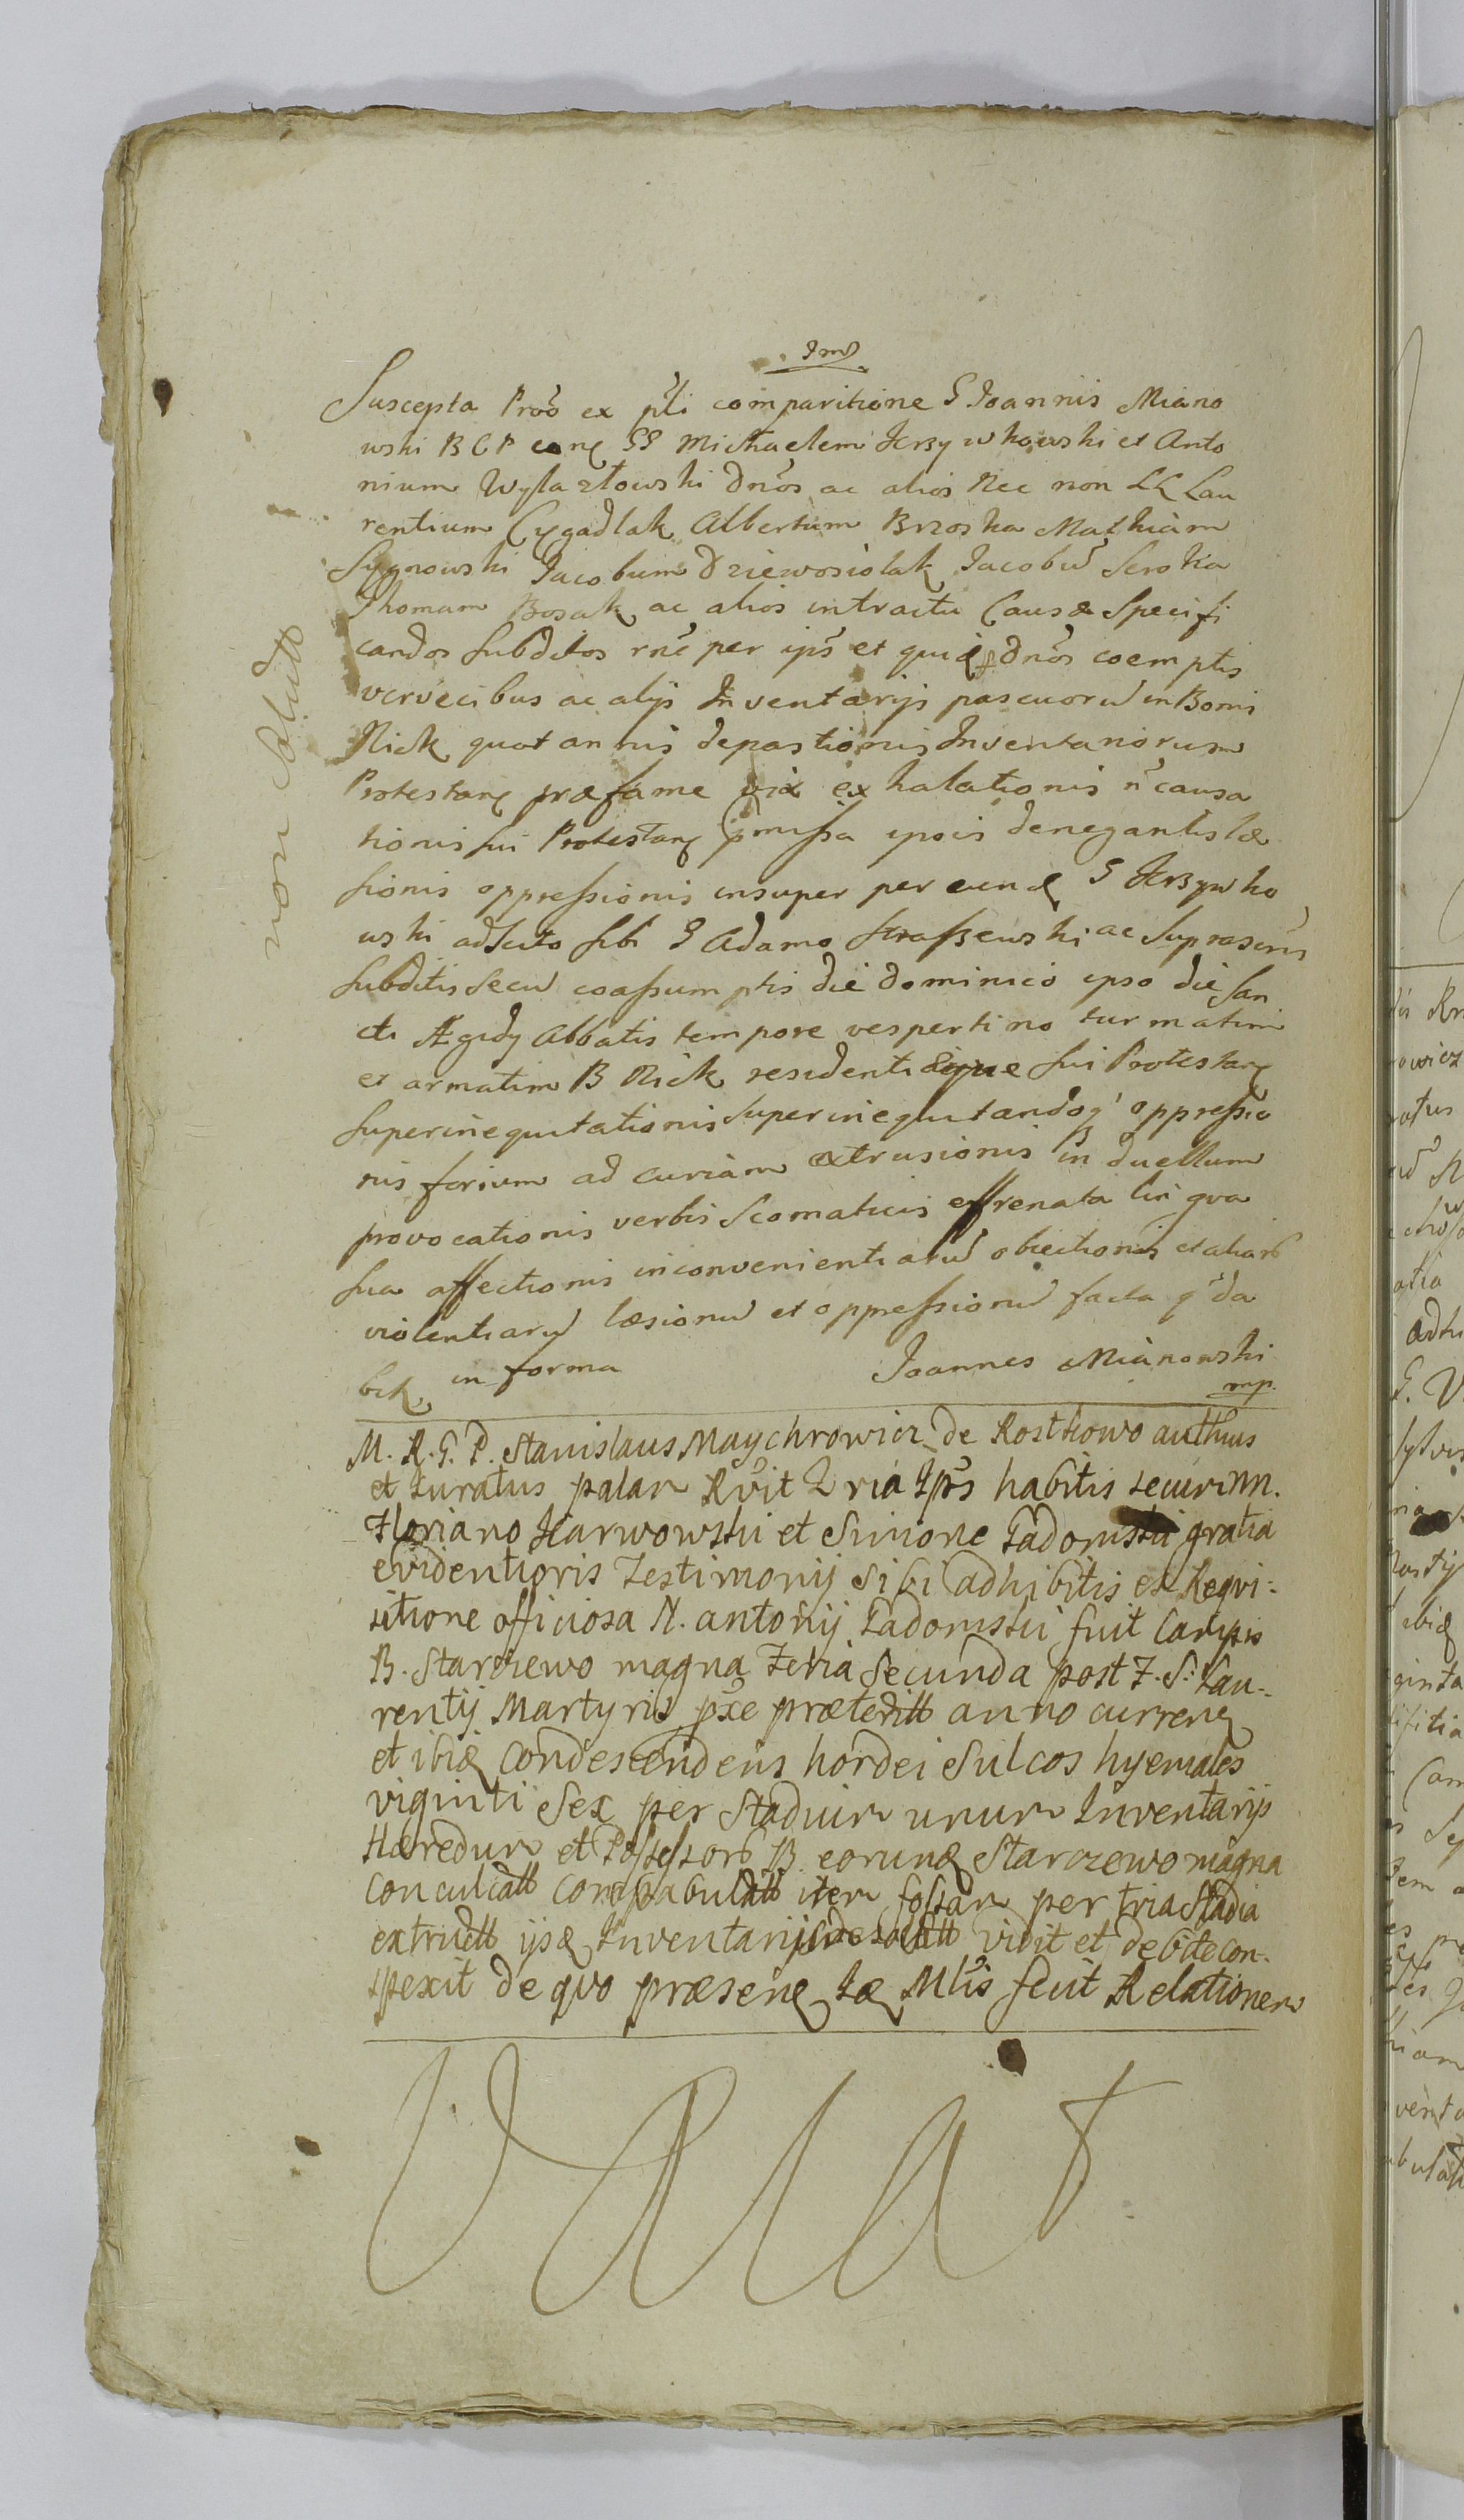 Imo
Suscepta Prõo ex pñti comparitione G Joannis Miano
wski B C P conę GG Michaelem Krzywkowski et Anto
nium Wylazłowski dnõs ac alios Nec non LL Lau
rentium Cygadlak Albertum Brzoska Mathiam
Sygnowski Jacobum Dziewosiolak Jacobũ Seroka
Thomam Bosak ac alios in tractu Causæ Specifi
candos Subditos rñe per ips et dnõs coemptis
vervecibus ac alijs Inventarijs pascuorũ in Bonis
Nick quotannis depastionis Inventariorum
Protestanę præfame viæ exhalationis ñ causa
tionis sui Protestanę pmissa ipsis denegantis læ
sionis oppressionis insuper per eundę G Krzywko
wski adscito sibi G Adamo Straszewski ac suprascrũs
subditis secũ coassumptis die dominico ipso die San
cti Ægidy Abbatis tempore vespertino turmatim
et armatim B Nick residentiæque sui Protestanę
superinequitationis superinequitandoq oppressio
nis forium ad curiam extrusionis in duellum
provocationis verbis scomaticis effrenata lingva
sua affectionis inconvenientiarũ obiectionis et aliarũ
violentiarũ læsionũ et oppressionũ facta q da
bit in forma
Joannes Mianowski
mp.
non solutt
M. R. G. P. Stanislaus Maychrowicz de Rostkowo authus
et Juratus palam Rvit Q ria Ipss habitis secum NN.
Floriano Karwowski et Simone Ladomski gratia
evidentioris Testimonij sibi adhibitis ex Reqvi-
sitione officiosa N. Antonij Ladomski fuit Campis
B. Starczewo magna Feria Secunda post F. S: Lau-
rentij Martyris pxe præteritt anno currenę
et ibię condescendens hordei Sulcos hyemales
viginti Sex per Stadium unum Inventarijs
Hæredum et Possessorũ B. eorundę Starczewo magna
conculcatt compabulatt item fossam per tria Stadia
extructt ijsdę Inventarijs vidit et debite con-
spexit de qvo præsenę suæ Mlis fecit Relationem